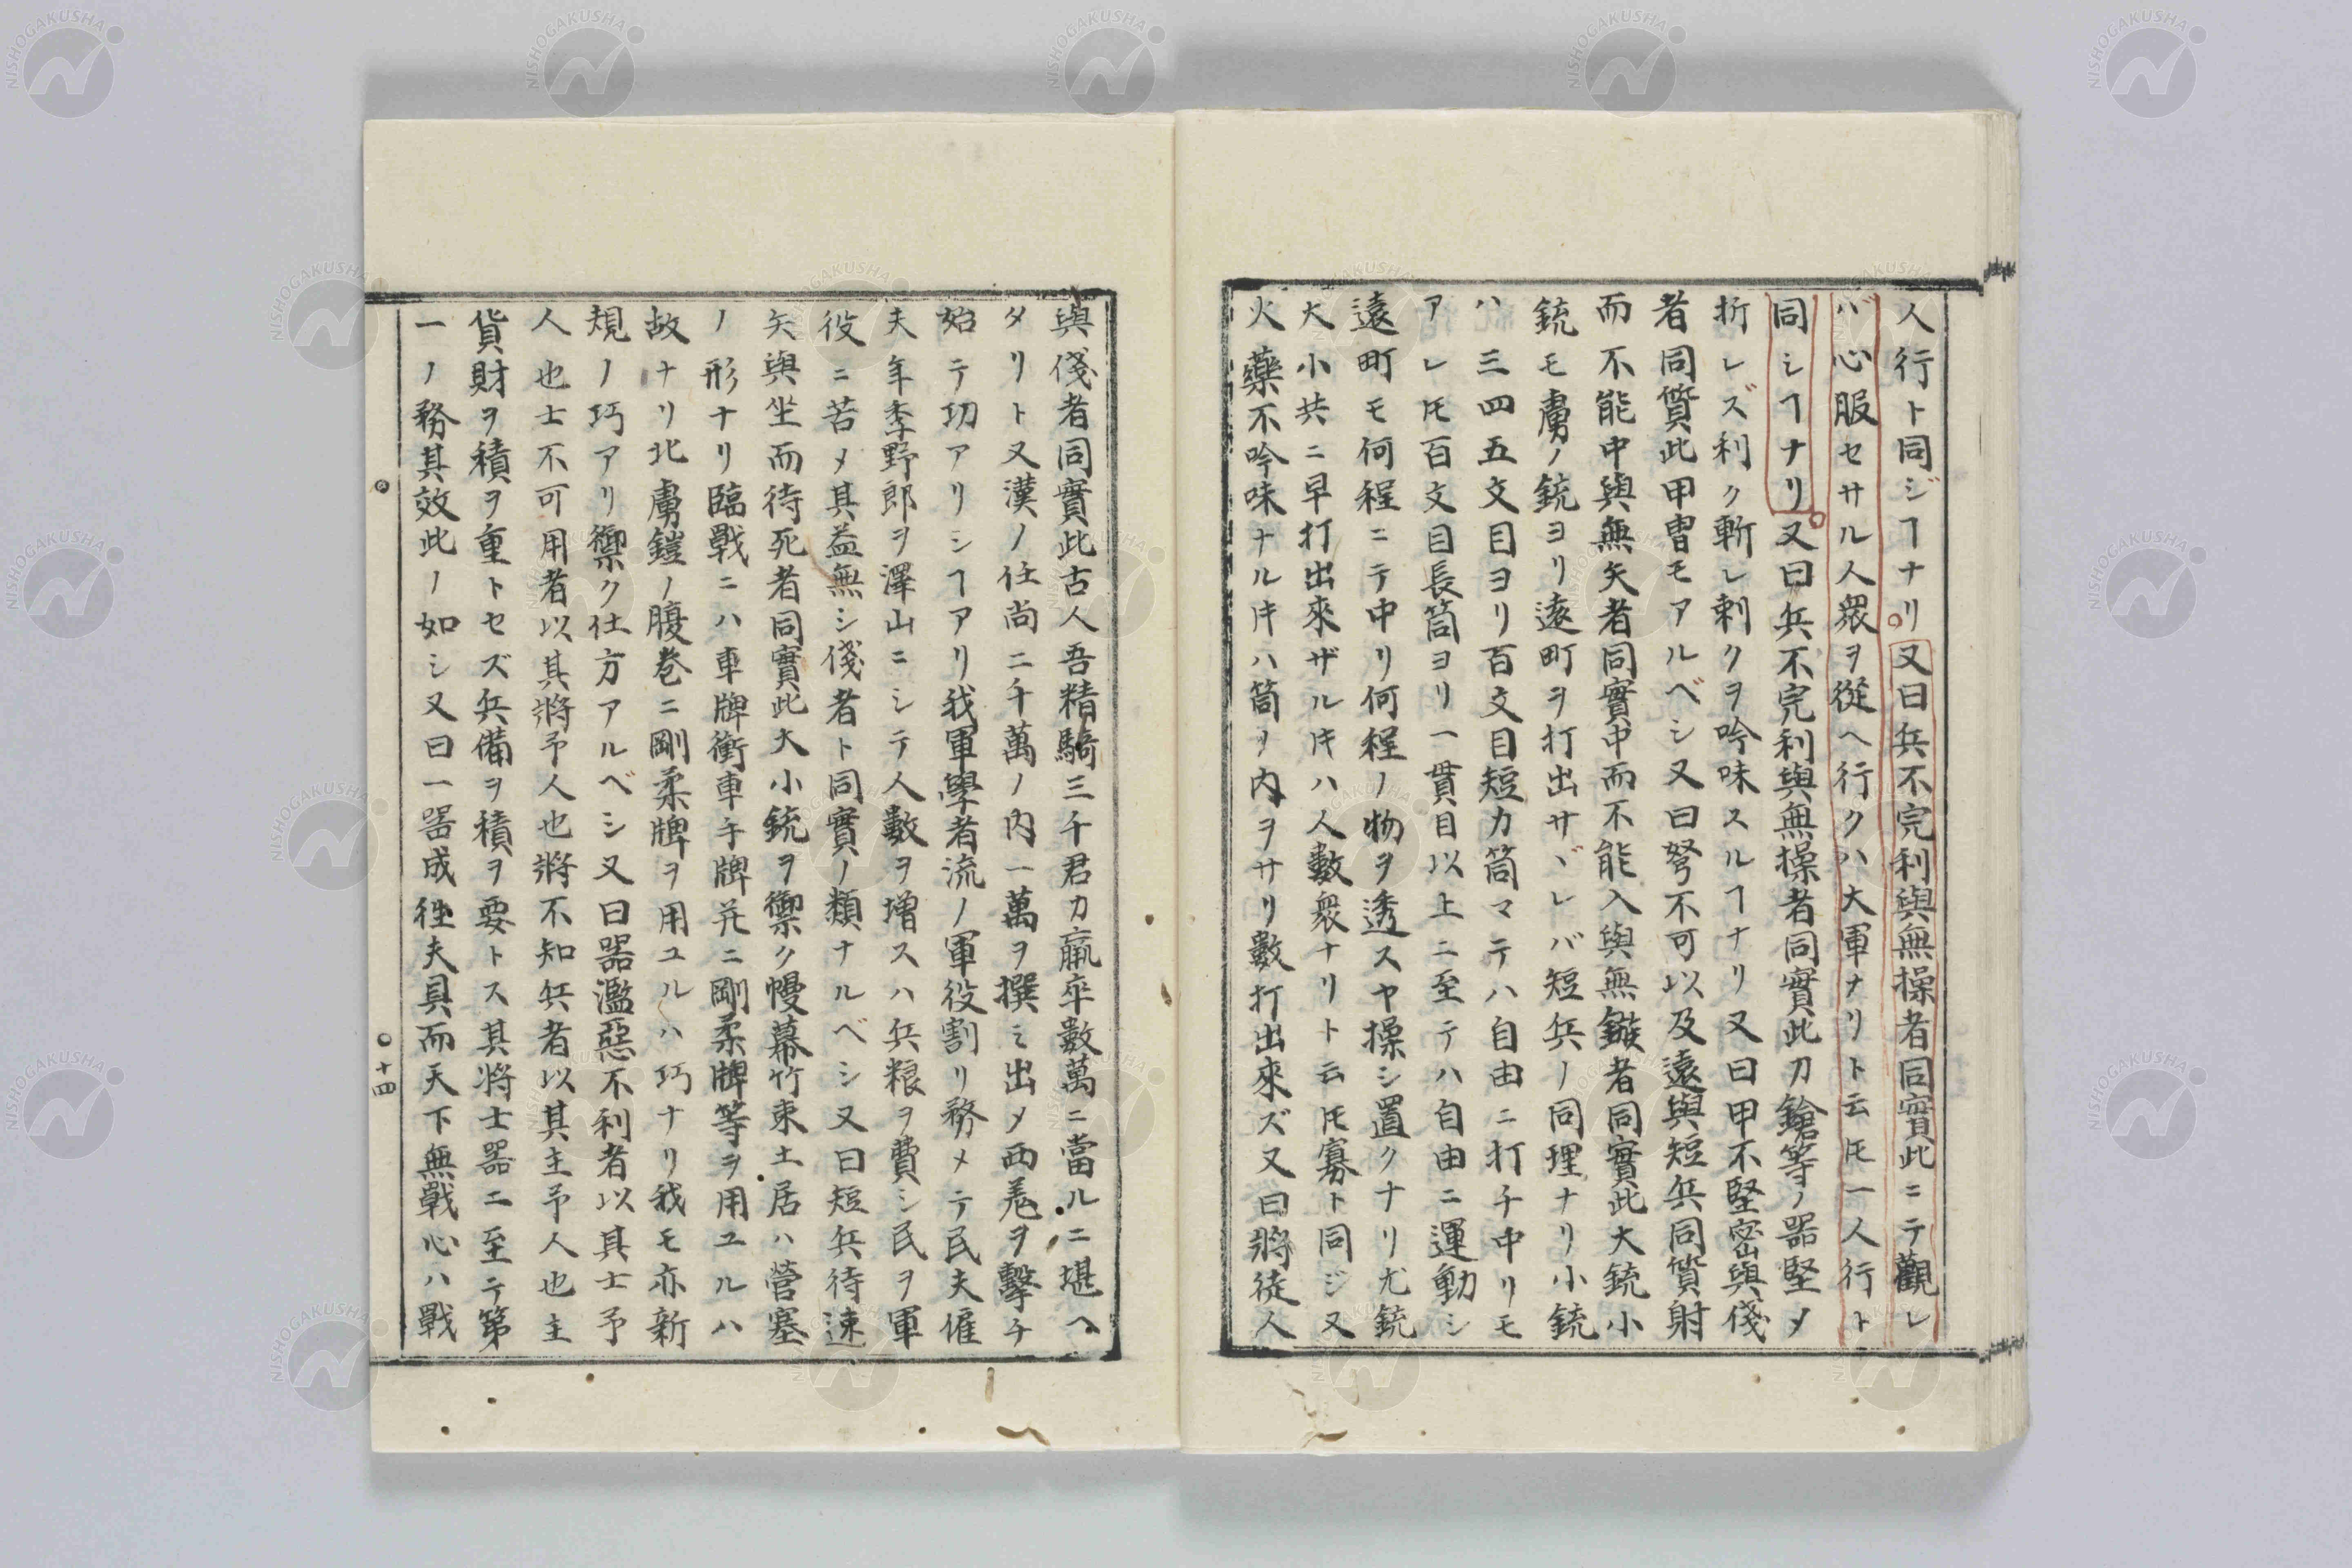 人行ト同ジヿナリ又曰兵不完利與無操者同實此ニテ觀レ
バ心服セサル人衆ヲ從ヘ行クハ大軍ナリト云𪜈一人行ト
同シヿナリ又曰兵不完利與無操者同實此刀鎗等ノ器堅メ
折レズ利ク斬レ刺クヲ吟味スルヿナリ又曰甲不堅密與俴
者同質此甲冑モアルベシ又曰弩不可以及遠與短兵同質射
而不能中與無矢者同實中而不能入與無鏃者同實此大銃小
銃モ虜ノ銃ヨリ遠町ヲ打出サヾレバ短兵ノ同理ナリ小銃
ハ三四五文目ヨリ百文目短カ筒マテハ自由ニ打チ中リモ
アレ𪜈百文目長筒ヨリ一貫目以上ニ至テハ自由ニ運動シ
遠町モ何程ニテ中リ何程ノ物ヲ透スヤ操シ置クナリ尤銃
大小共ニ早打出來ザル𪜈ハ人數衆ナリト云𪜈寡ト同ジ又
火藥不吟味ナル𪜈ハ筒ヲ内ヲサリ數打出來ズ又曰將徒人
與俴者同實此古人吾精騎三千君カ羸卒數萬ニ當ルニ堪ヘ
タリト又漢ノ任尚二千萬ノ内一萬ヲ撰ミ出メ西羗ヲ擊チ
始テ功アリシヿアリ我軍學者流ノ軍役割リ務メテ民夫雇
夫年季野郎ヲ澤山ニシテ人數ヲ增スハ兵粮ヲ費シ民ヲ軍
役ニ苦メ其益無シ俴者ト同實ノ類ナルベシ又曰短兵待速
矢與坐而待死者同實此大小銃ヲ禦ク幔幕竹束土居ハ營塞
ノ形ナリ臨戰ニハ車牌衝車手牌幷ニ剛柔牌等ヲ用ユルハ
故ナリ北虜鎧ノ腹巻ニ剛柔牌ヲ用ユルハ巧ナリ我モ亦新
規ノ巧アリ禦ク仕方アルベシ又曰器濫惡不利者以其士予
人也士不可用者以其將予人也將不知兵者以其主予人也主
貨財ヲ積ヲ重トセズ兵備ヲ積ヲ要トス其將士器ニ至テ第
一ノ務其效此ノ如シ又曰一器成徃夫具而天下無戰心ハ戰
十四
NISHOGAKUSHA